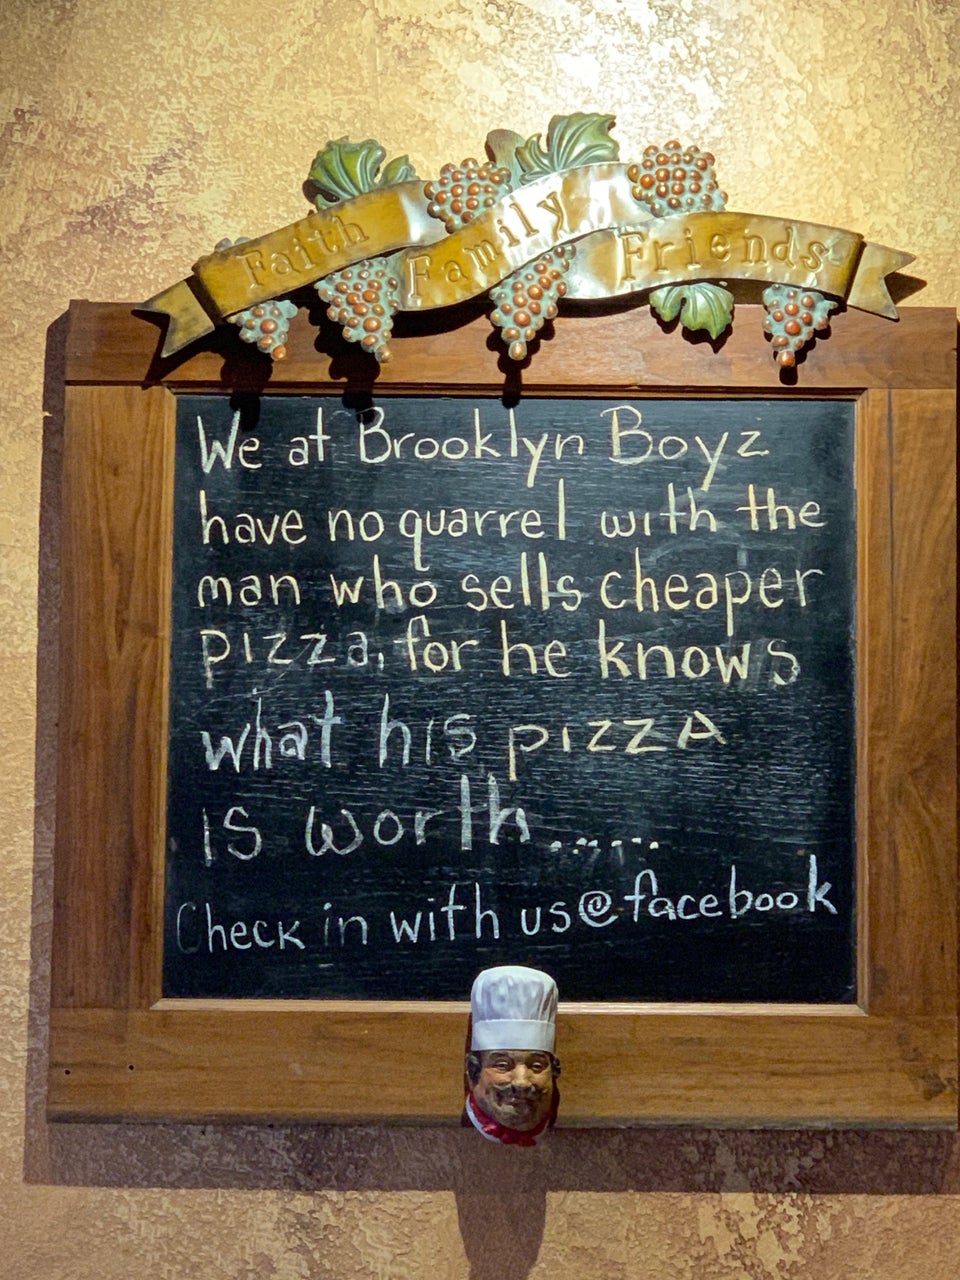 Faith Family Friends
We at Brooklyn Boyz
have no quarrel with the
man who sells cheaper
pizza, for he knows
what his pizzA
is worth......
Check in with us@facebook